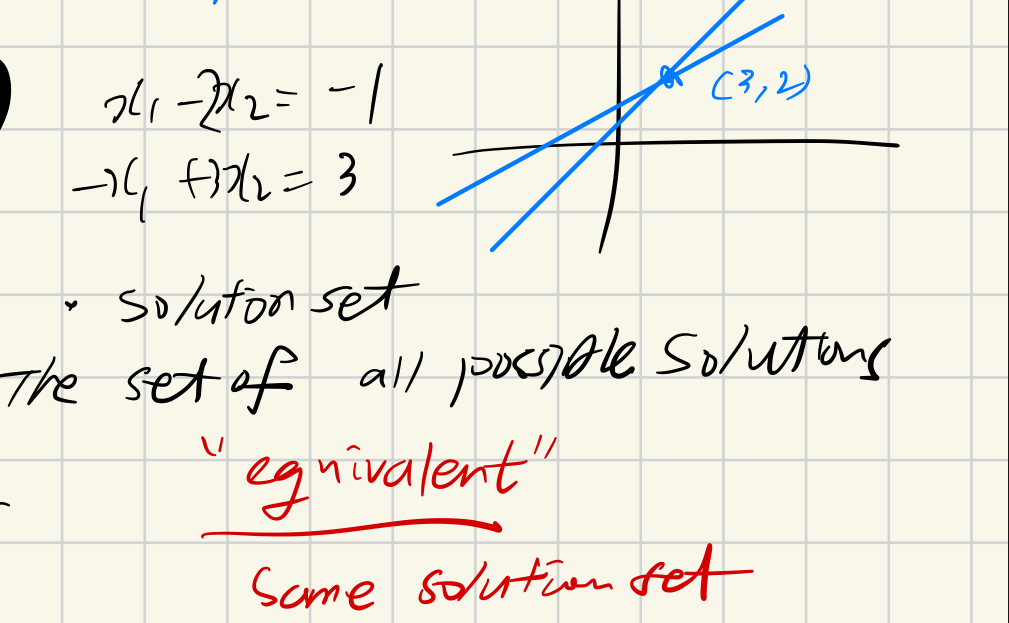 x₁ - 2x₂ = -1
-x₁ + 3x₂ = 3
(3, 2)
· solution set
The set of all possible solutions
"equivalent"
same solution set